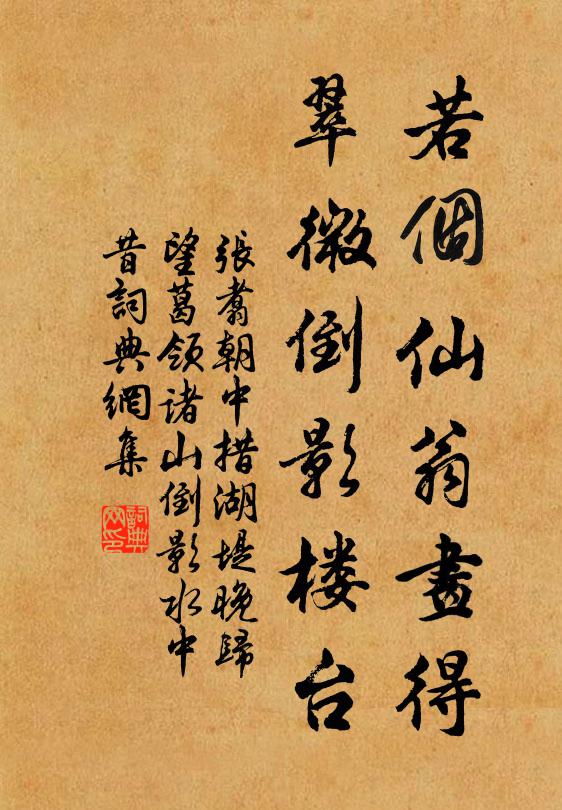 若個仙翁畫得
翠微倒影楼台
張翥朝中措湖堤晚歸
望葛領诸山倒影水中
昔詞典網集
詞典
网印